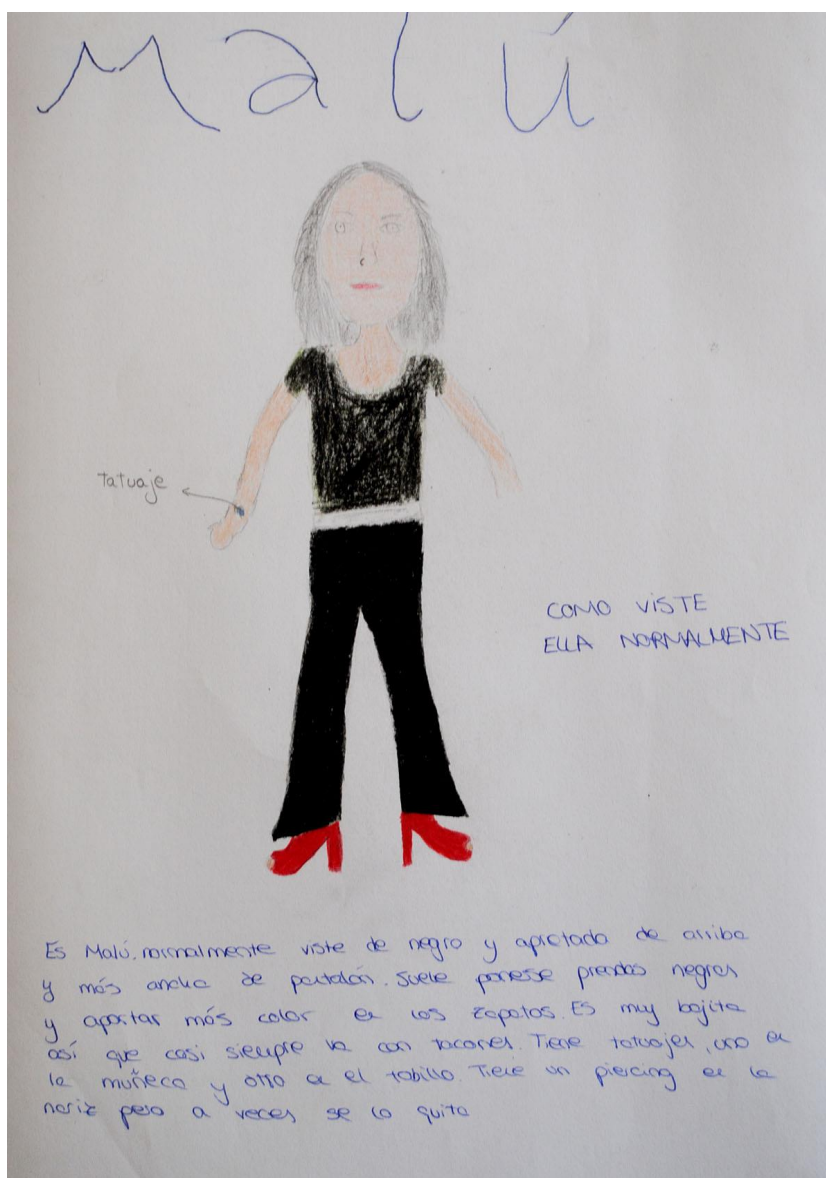 Malú
tatuaje
COMO VISTE
ELLA NORMALMENTE
Es Malú, normalmente viste de negro y apretada de arriba
y más ancha de pantalón. Suele ponerse prendas negras
y aportar más color en los zapatos. Es muy bajita
así que casi siempre va con tacones. Tiene tatuajes, uno en
la muñeca y otro en el tobillo. Tiene un piercing en la
nariz pero a veces se lo quita